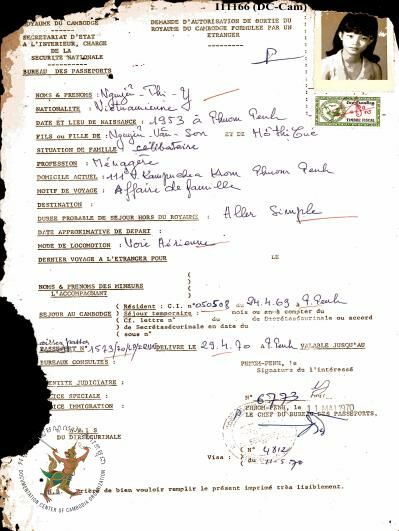 1TH66 (DC-Cam)
ROYAUME DU CAMBODGE
SECRETARIAT D'ETAT
A L'INTERIEUR, CHARGE
DE LA
SECURITE NATIONALE
BUREAU DES PASSEPORTS
DEMANDE D'AUTORISATION DE SORTIE DU
ROYAUME DU CAMBODGE FORMULEE PAR UN
ETRANGER
TIMBRE FISCAL
NOMS & PRENOMS : Nguyễn Thi Y
NATIONALITE : Vietnamienne
DATE ET LIEU DE NAISSANCE : 1953 à Phnom Penh
FILS ou FILLE DE : Nguyễn Văn Son ET DE Hô Thi Cué
SITUATION DE FAMILLE : célibataire
PROFESSION : Ménagère
DOMICILE ACTUEL : 111 V. Kampuchea Krom Phnom Penh
MOTIF DE VOYAGE : Affaire de famille
DESTINATION :
DUREE PROBABLE DE SEJOUR HORS DU ROYAUME : Aller Simple
DATE APPROXIMATIVE DE DEPART :
MODE DE LOCOMOTION : Voie Aérienne
DERNIER VOYAGE A L'ETRANGER POUR LE
NOMS & PRENOMS DES MINEURS
L'ACCOMPAGNANT
SEJOUR AU CAMBODGE
Résident : C.I. n° 050508 du 24.4.69 à P.Penh
Séjour temporaire : mois ou en à compter du
Cf. lettre n° du du Dcrsétésécurinale ou accord
de Secrétasécurinale en date du
sous n°
laissez passer
PASSEPORT N° 1573 DELIVRE LE 29.4.70 à P.Penh VALABLE JUSQU'AU
BUREAUX CONSULTES :
PHNOM-PENH, le
Signature de l'intéressé
IDENTITE JUDICIAIRE :
POLICE SPECIALE :
POLICE IMMIGRATION :
N° 6773
PHNOM-PENH, le 11 MAI 1970
LE CHEF DU BUREAU DES PASSEPORTS,
AVIS
DU DIRSECURINALE
Visa : ( N° 4812
( du 11-5-70
N.B. Prière de bien vouloir remplir le présent imprimé très lisiblement.
DOCUMENTATION CENTER OF CAMBODIA ORGANIZATION